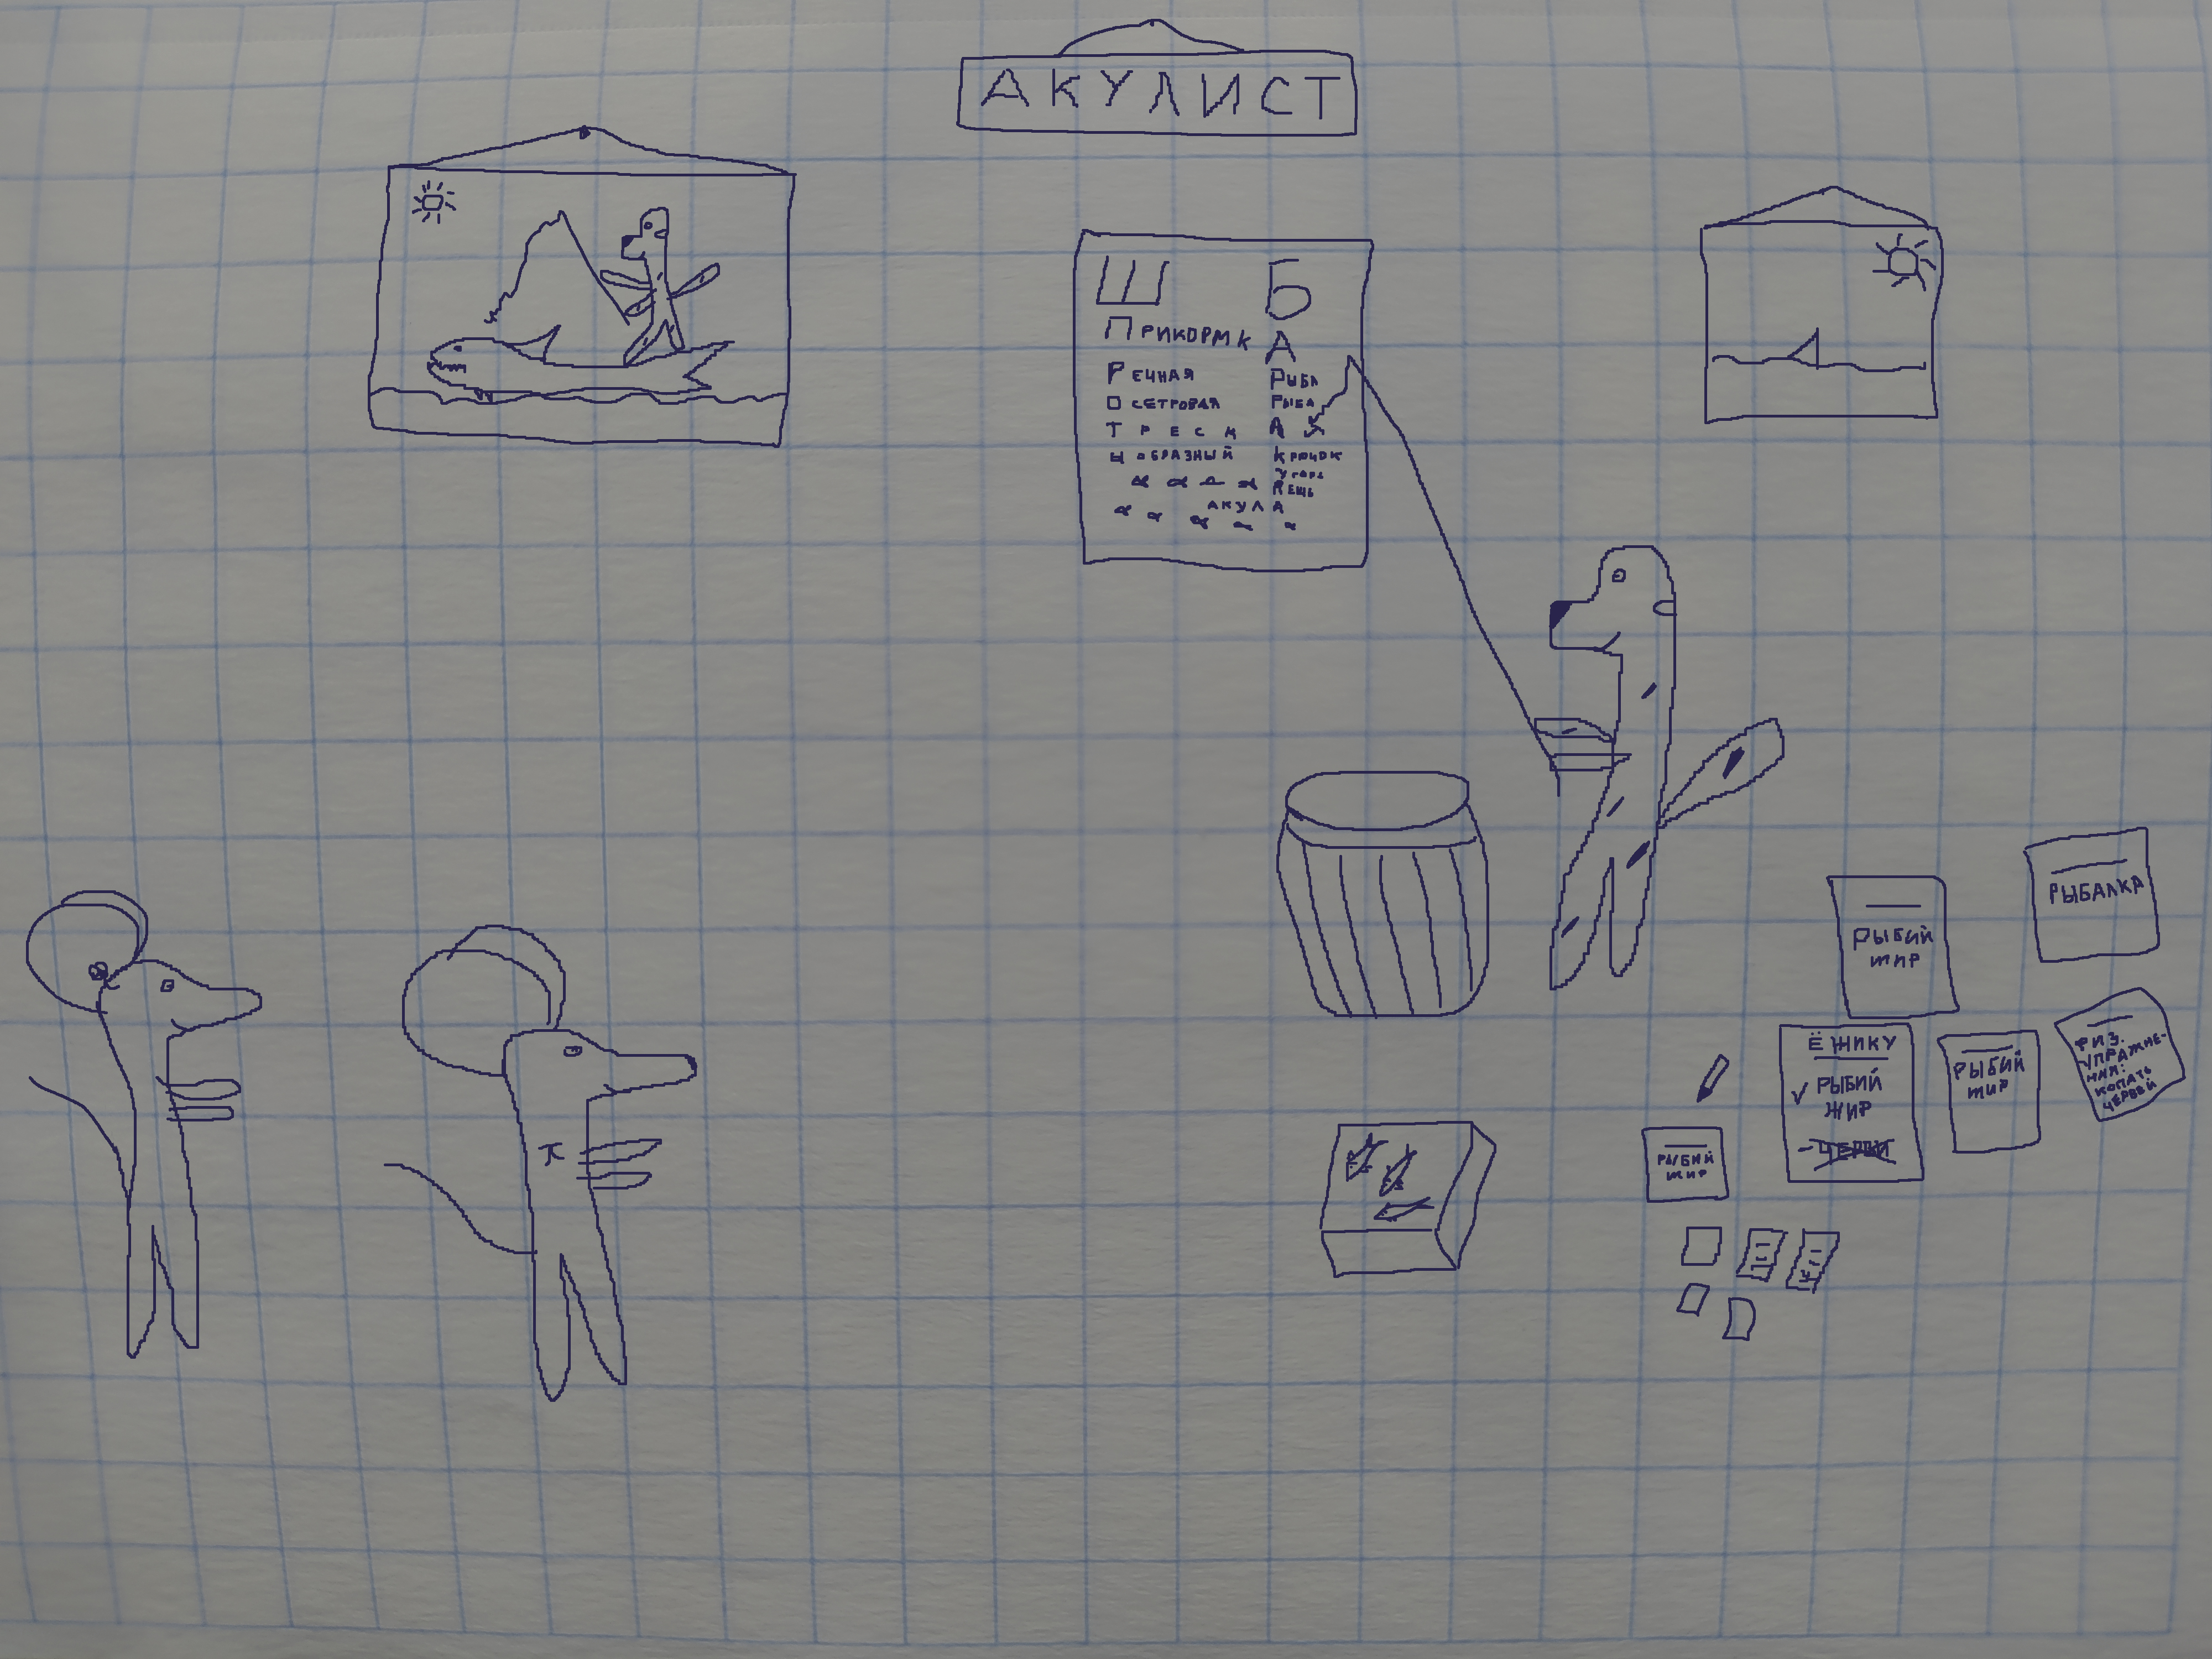 АКУЛИСТ
Ш Б
ПРИКОРМК А
РЕЧНАЯ РЫБА
ОСЕТРОВАЯ РЫБА
ТРЕСК А
Ч ОБРАЗНЫЙ КРЮЧОК
УГОРЬ
ЛЕЩЬ
АКУЛА
РЫБАЛКА
РЫБИЙ
ЖИР
ЁЖИКУ
РЫБИЙ
ЖИР
-ЧЕРВИ
РЫБИЙ
ЖИР
ФИЗ.
УПРАЖНЕ-
НИЯ:
КОПАТЬ
ЧЕРВЕЙ
РЫБИЙ
ЖИР